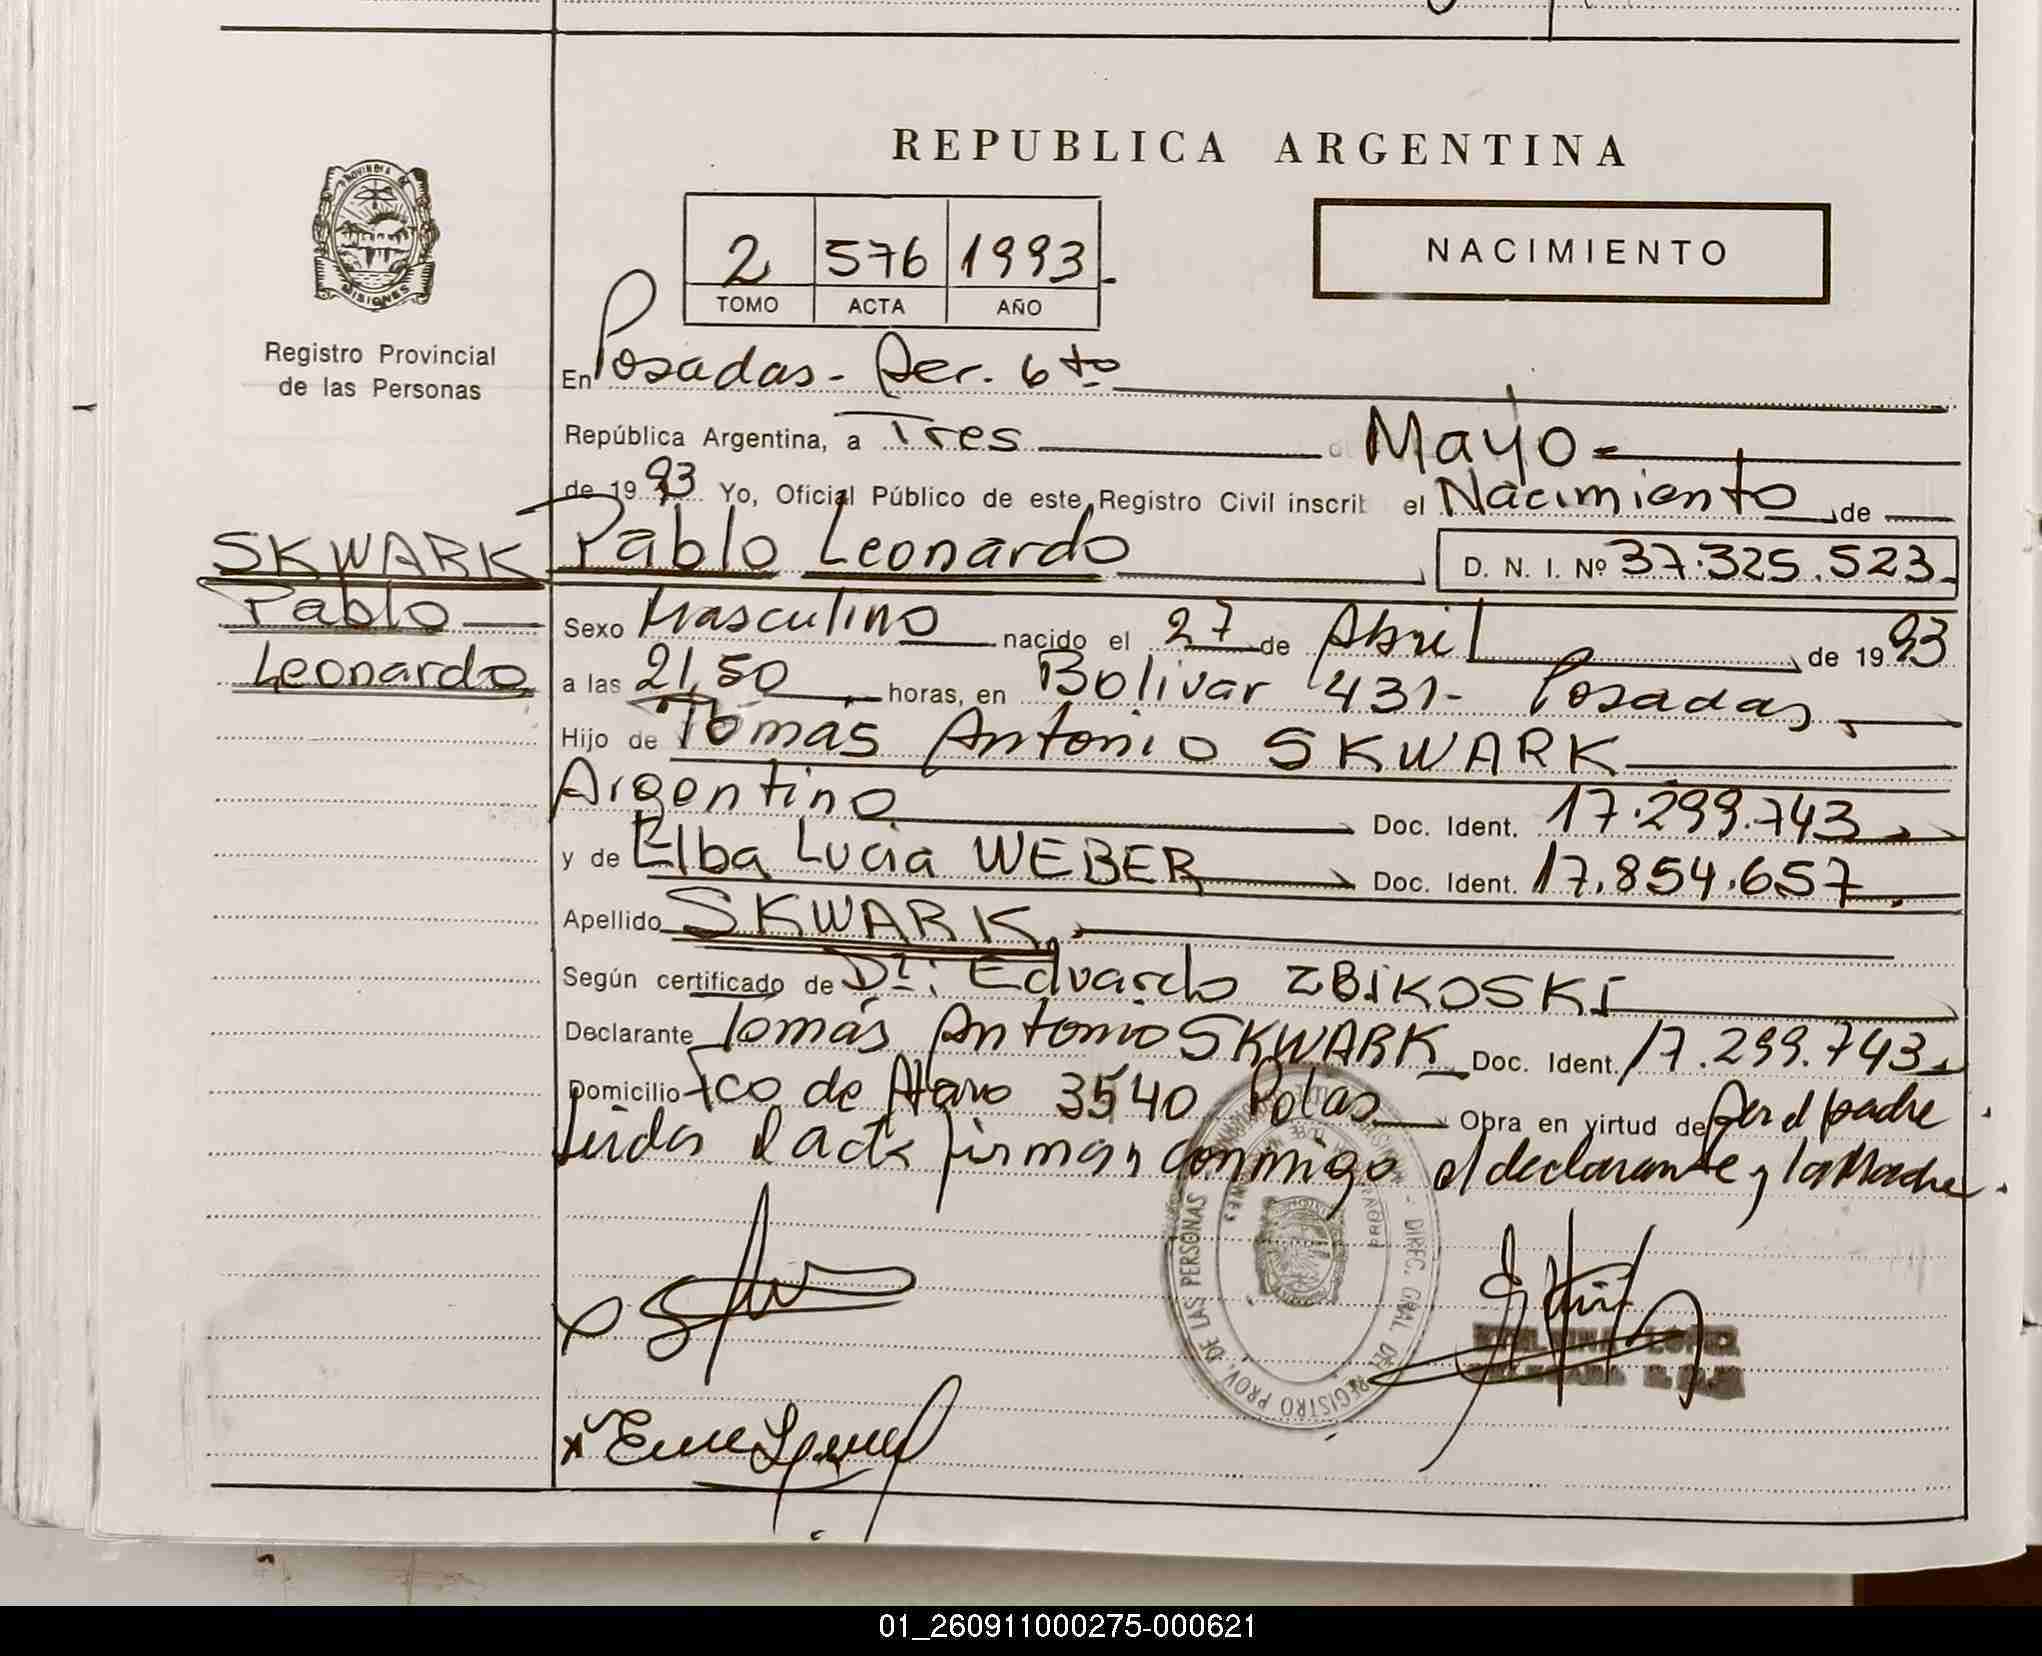 REPUBLICA ARGENTINA
PROVINCIA DE
MISIONES
Registro Provincial
de las Personas
2 576 1993
TOMO ACTA AÑO
NACIMIENTO
En Posadas - Secc. 6to
República Argentina, a Tres Mayo
de 1993 Yo, Oficial Público de este Registro Civil inscrib el Nacimiento de
SKWARK
Pablo
Leonardo
Pablo Leonardo D. N. I. Nº 37.325.523.
Sexo Masculino nacido el 27 de Abril de 1993
a las 21,50 horas, en Bolivar 431 - Posadas
Hijo de Tomás Antonio SKWARK
Argentino Doc. Ident. 17.299.743
y de Elba Lucia WEBER Doc. Ident. 17.854.657
Apellido SKWARK
Según certificado de Dr: Eduardo ZBIKOSKI
Declarante Tomás Antonio SKWARK Doc. Ident. 17.299.743
Domicilio Fco de Haro 3540 Pdas Obra en virtud de ser el padre
Leida el acta firman conmigo el declarante y la Madre.
REGISTRO PROV. DE LAS PERSONAS
DIREC. GRAL. DE
LOPEZ
01_260911000275-000621